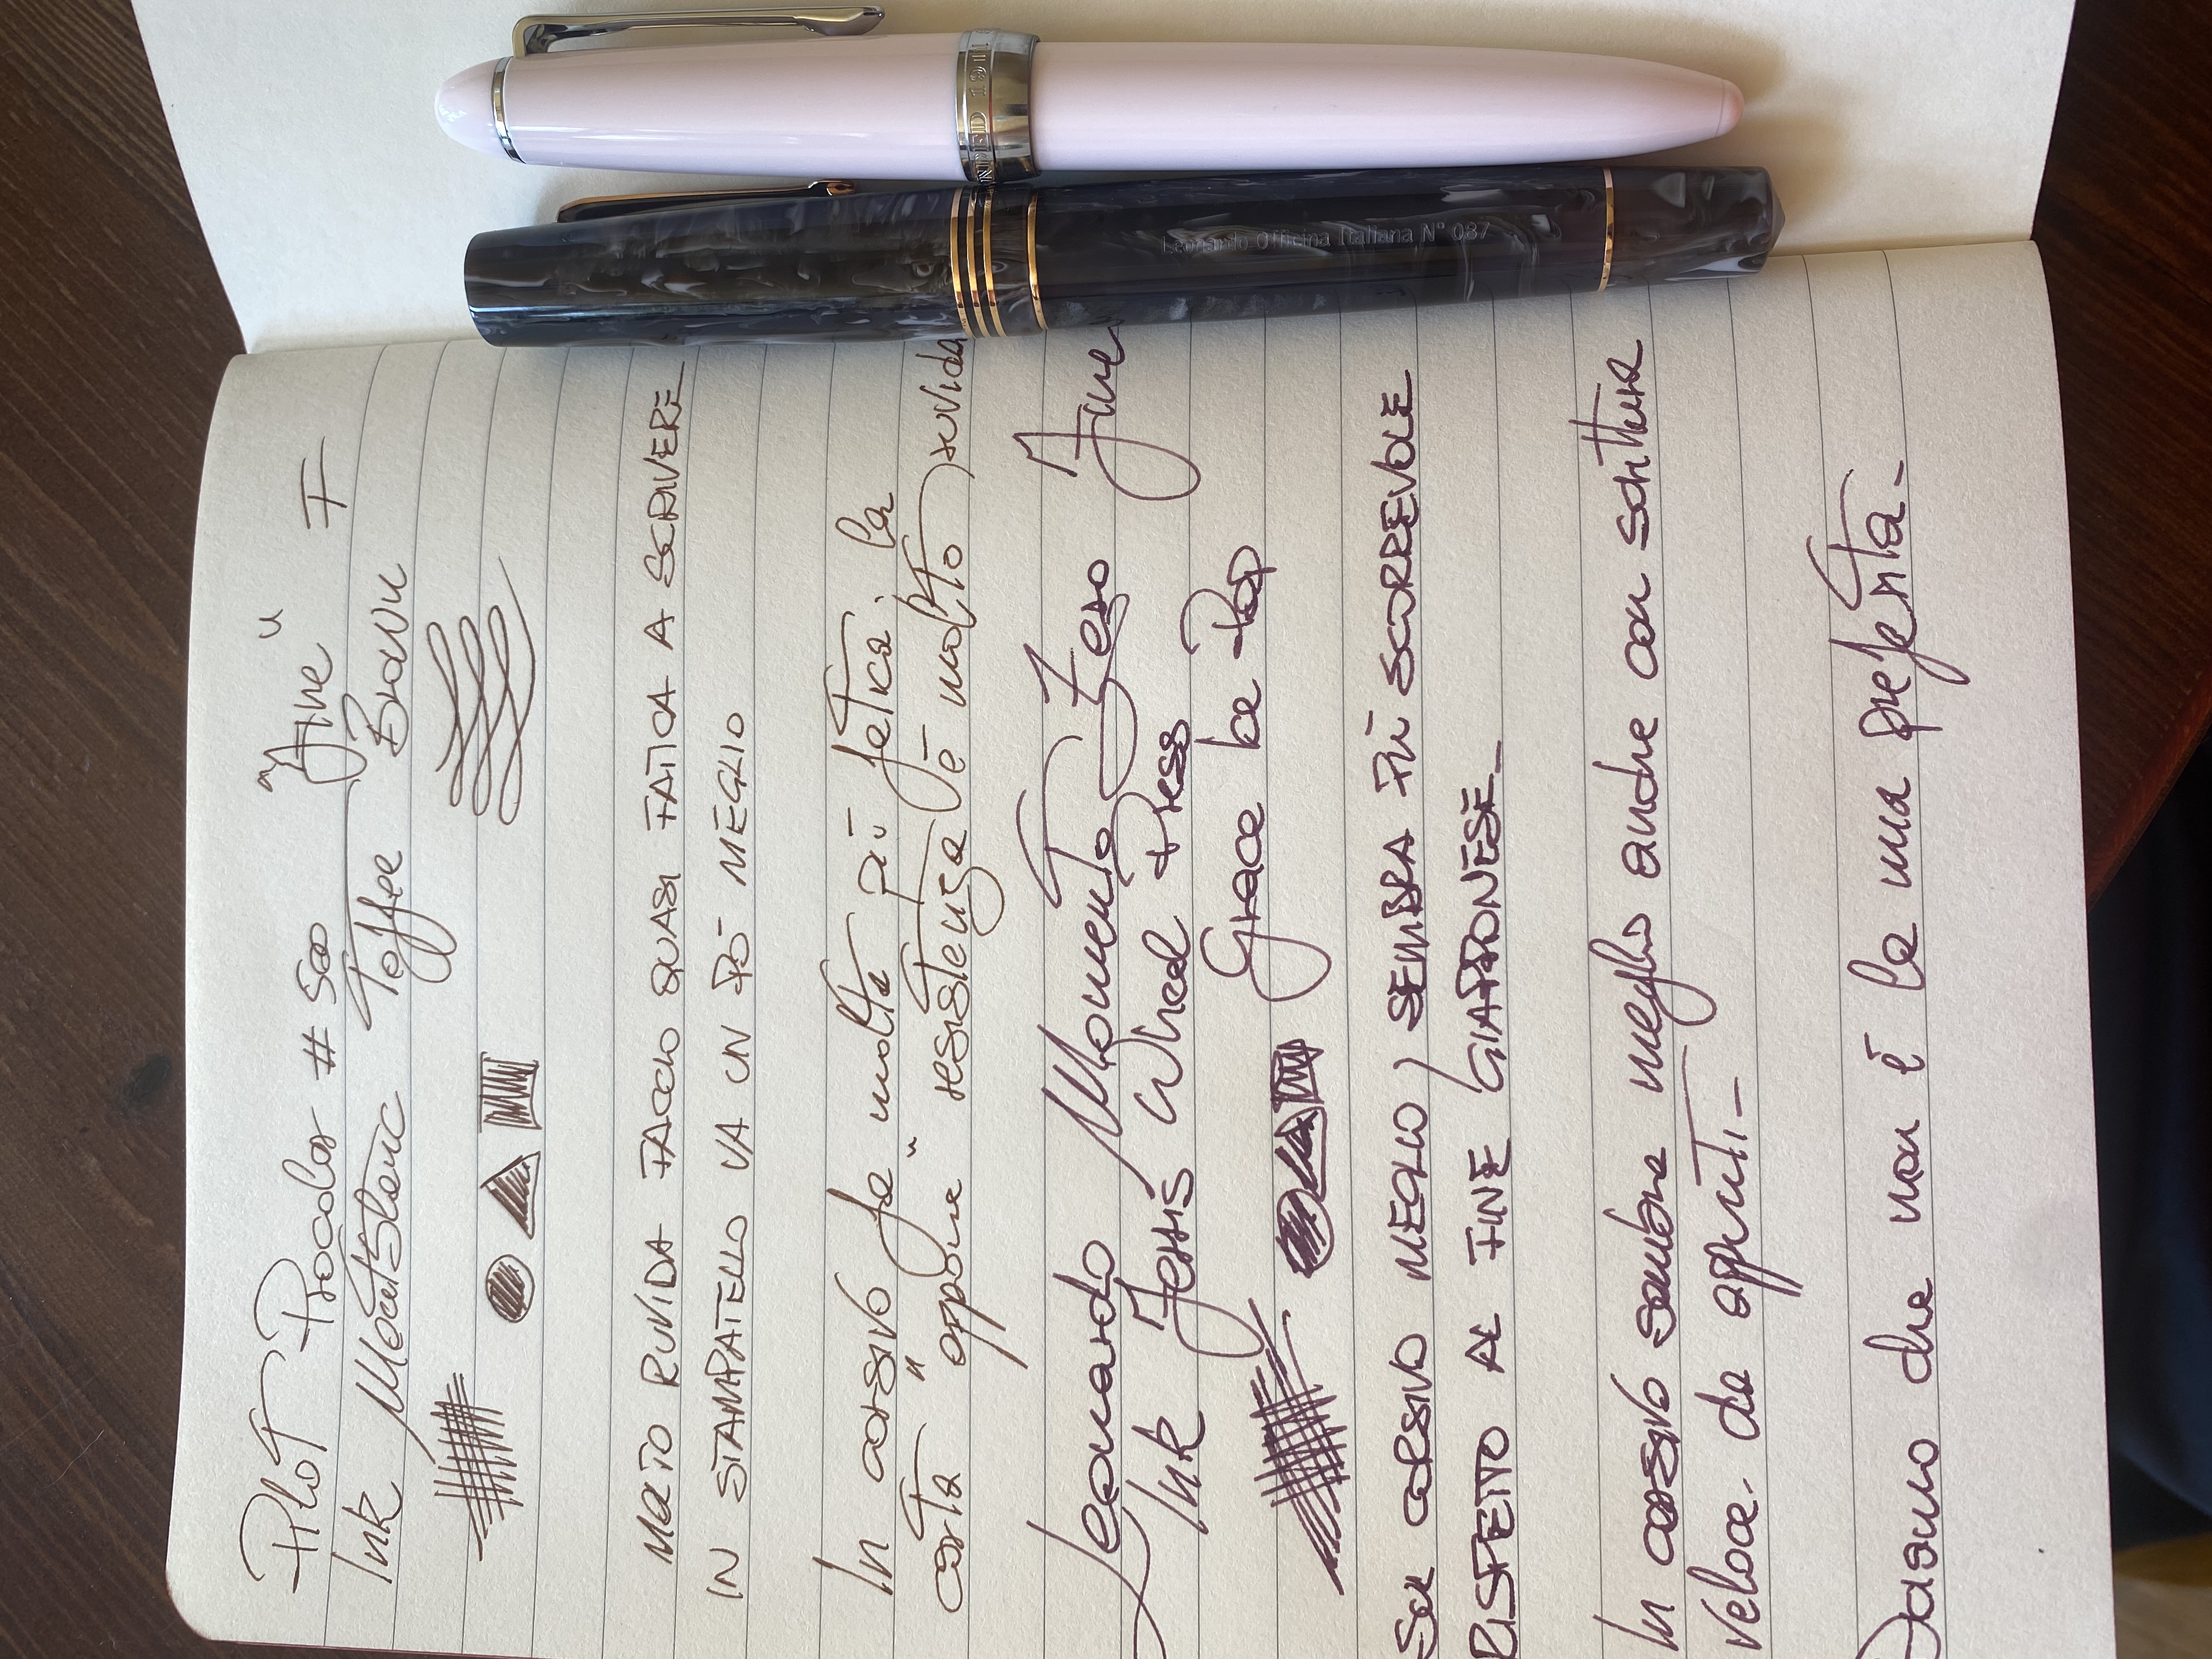 Pilot Procolor # 500 "Fine"
F
Ink Montblanc Toffee Brown
MOLTO RUVIDA FACCIO QUASI FATICA A SCRIVERE
IN STAMPATELLO VA UN PÒ MEGLIO
In corsivo fa molta più fatica. la
carta " oppone " resistenza (è molto) ruvida
Leonardo Momento Zero Fine
Ink Ferris Wheel Press
Grace be Pop
SUL CORSIVO MEGLIO, SEMBRA PIÙ SCORREVOLE
RISPETTO AL FINE GIAPPONESE_
In corsivo sembra meglio anche con scrittura
veloce. da appunti_
Diciamo che non è la mia preferita_
Leonardo Officina Italiana N° 087